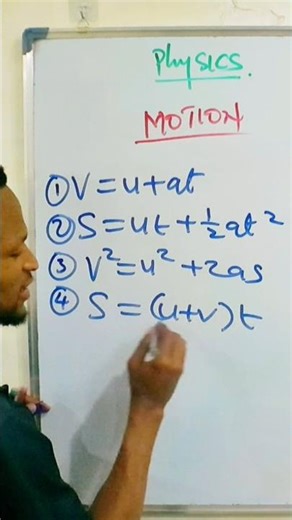 Physics.
MOTION
① V = u + at
② S = ut + ½at²
③ V² = u² + 2as
④ S = (u+v)t